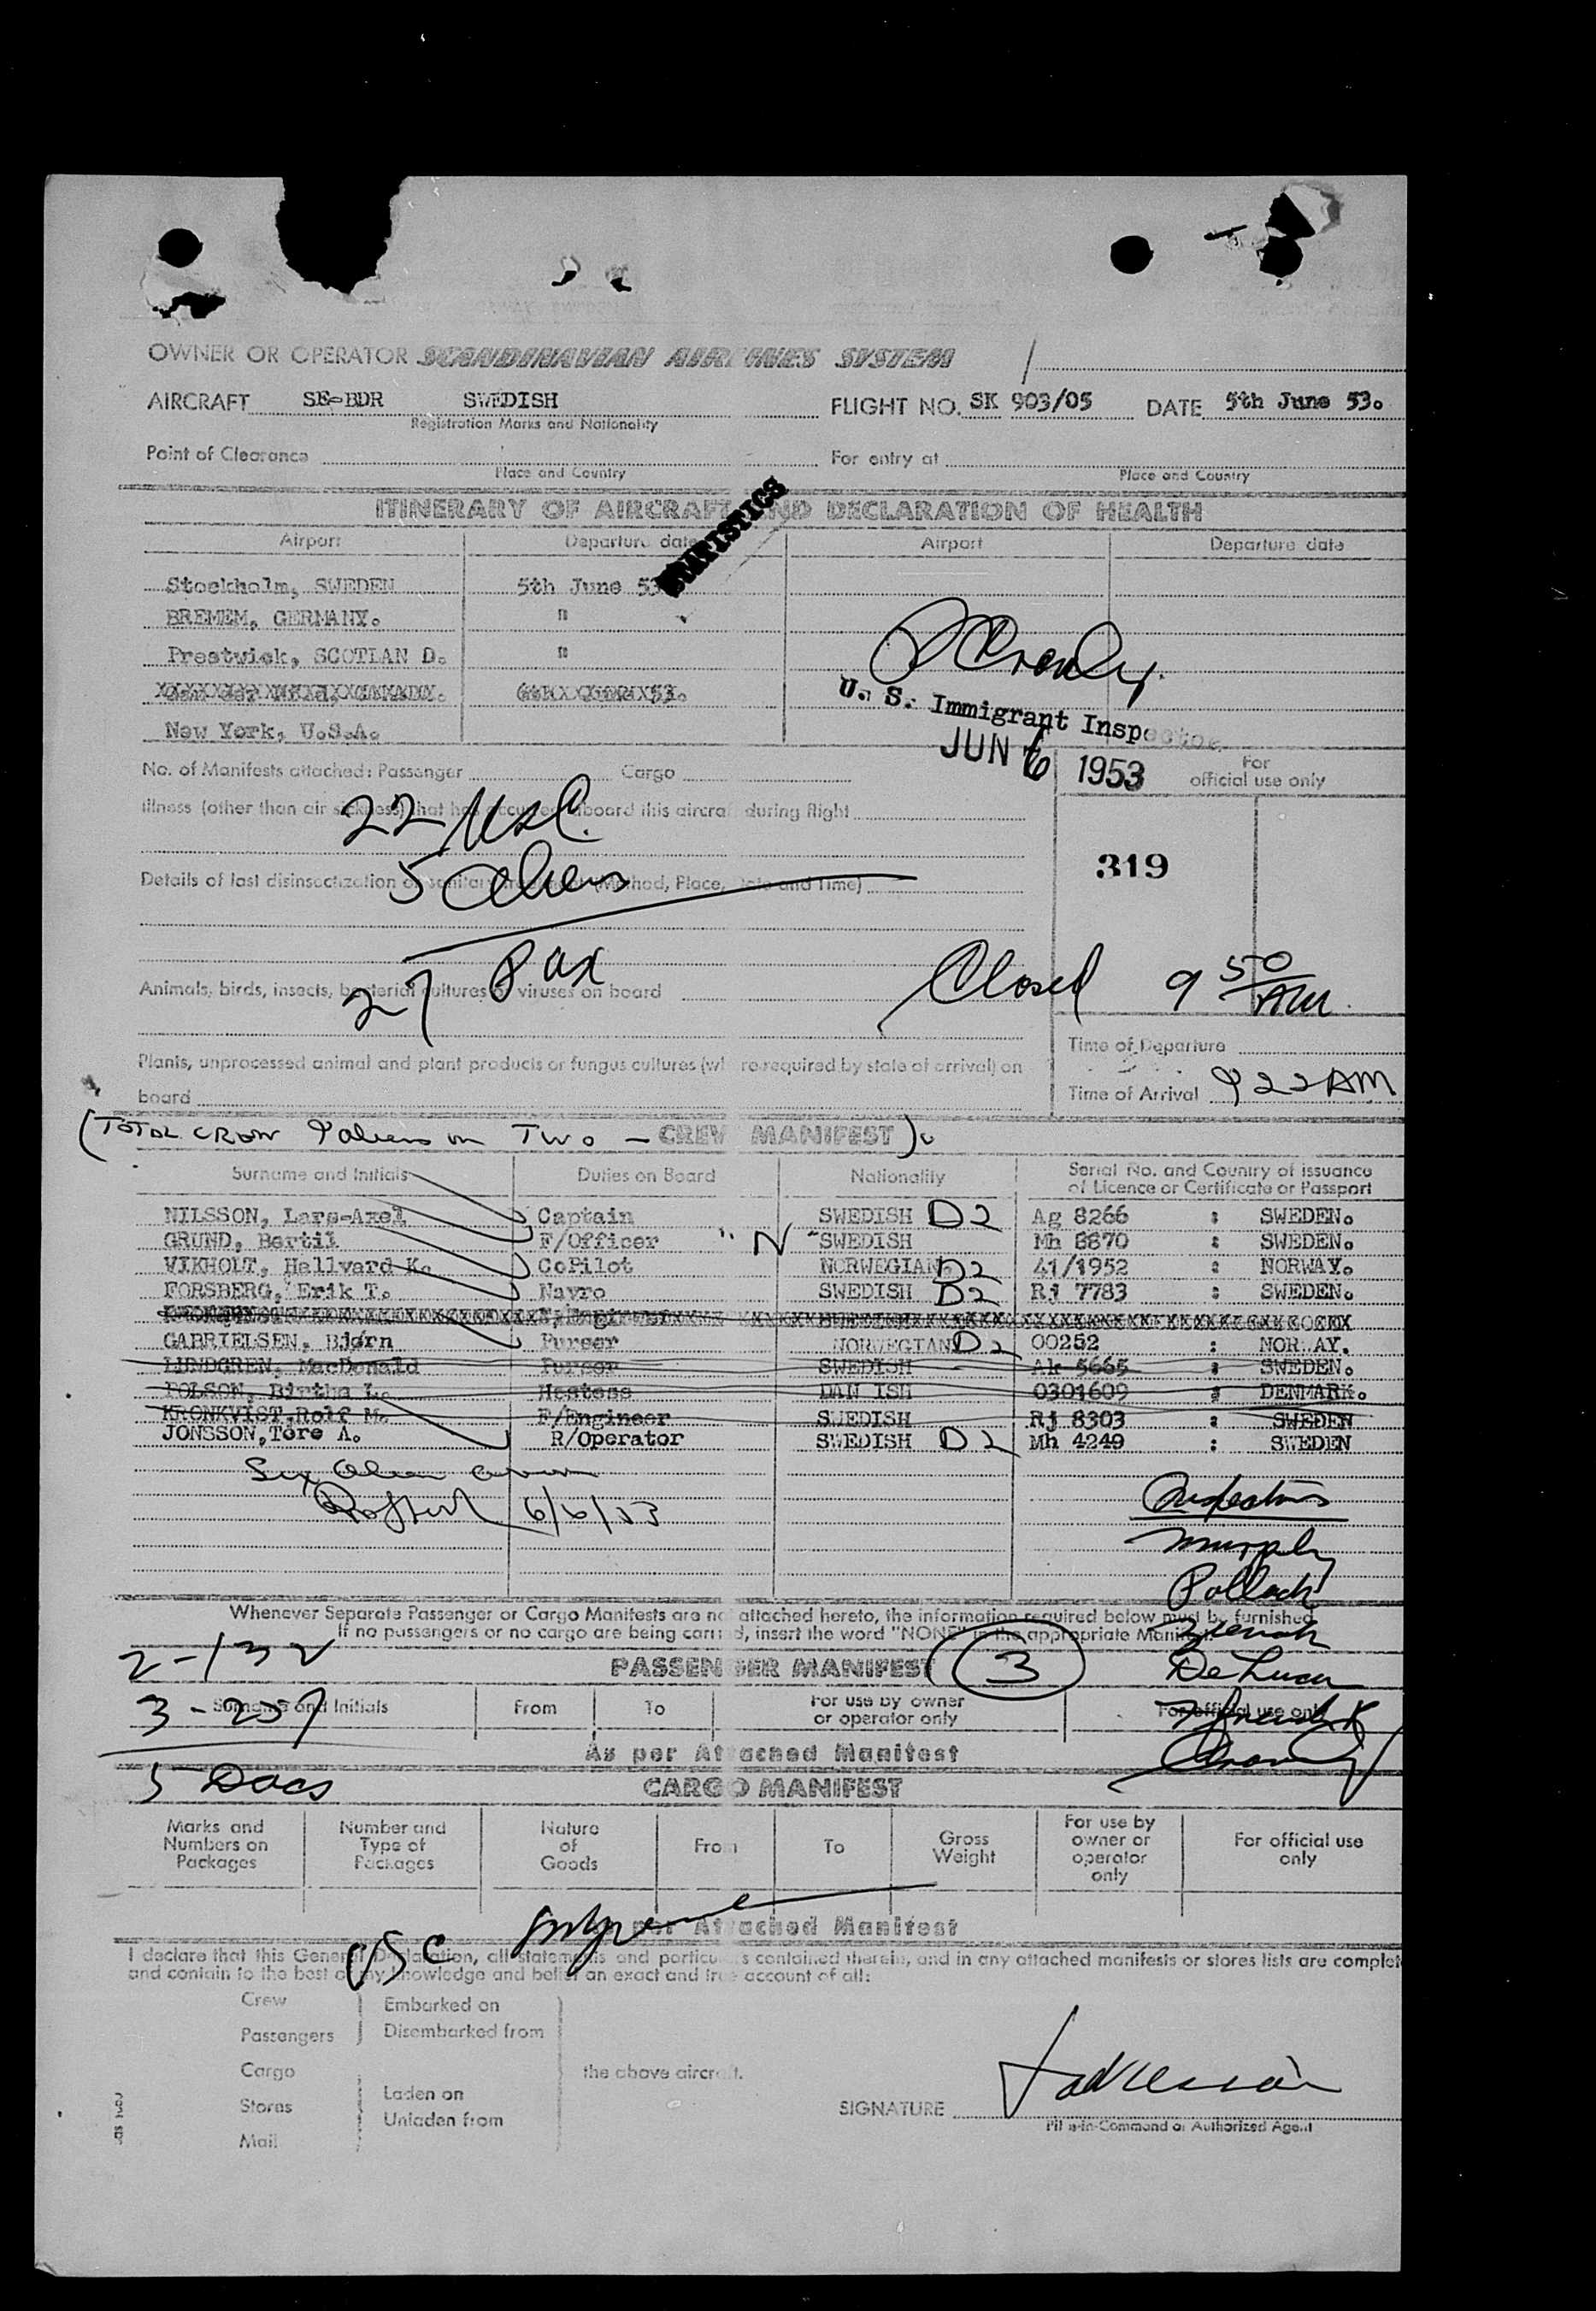 OWNER OR OPERATOR SCANDINAVIAN AIRLINES SYSTEM
AIRCRAFT SE-BDR SWEDISH FLIGHT NO. SK 903/05 DATE 5th June 53.
Registration Marks and Nationality
Point of Clearance For entry at
Place and Country Place and Country
STATISTICS
ITINERARY OF AIRCRAFT AND DECLARATION OF HEALTH
Airport Departure date Airport Departure date
Stockholm, SWEDEN 5th June 53
BREMEM, GERMANY. "
Prestwick, SCOTLAN D. "
New York, U.S.A.
U. S. Immigrant Inspector
JUN 6 1953
No. of Manifests attached: Passenger Cargo
For
official use only
Illness (other than air sickness) that has occurred aboard this aircraft during flight
22 USC.
319
Details of last disinsectization or sanitary treatment (Method, Place, Date and Time)
5 aliens
27 Pax
Closed 9 50 AM
Animals, birds, insects, bacterial cultures or viruses on board
Time of Departure
Plants, unprocessed animal and plant products or fungus cultures (where required by state of arrival) on
board
Time of Arrival 9 22 AM
(TOTAL CREW 9 aliens on Two - CREW MANIFEST).
Surname and Initials Duties on Board Nationality Serial No. and Country of issuance
of Licence or Certificate or Passport
NILSSON, Lars-Axel Captain SWEDISH D2 Ag 8266 : SWEDEN.
GRUND, Bertil F/Officer "N" SWEDISH Mh 8870 : SWEDEN.
VIKHOLT, Hallvard K. CoPilot NORWEGIAN. D2 41/1952 : NORWAY.
FORSBERG, Erik T. Navro SWEDISH D2 Rj 7783 : SWEDEN.
GABRIELSEN, Bjørn Purser NORWEGIAN D2 00252 : NORWAY.
LUNDGREN, MacDonald Purser SWEDISH Ak 5665 : SWEDEN.
POLSON, Birtha L. Hostess DAN ISH 0301609 : DENMARK.
KRONKVIST, Rolf M. F/Engineer SWEDISH Rj 8303 : SWEDEN
JONSSON, Tore A. R/Operator SWEDISH D2 Mh 4249 : SWEDEN
Six Alien crew
6/6/53
Inspectors
Murphy
Pollack
Whenever Separate Passenger or Cargo Manifests are not attached hereto, the information required below must be furnished.
If no passengers or no cargo are being carried, insert the word "NONE" in the appropriate Manifest.
2-132
PASSENGER MANIFEST 3
De Luca
3-257
Surname and Initials From To For use by owner
or operator only For official use only
As per Attached Manifest
5 Docs
CARGO MANIFEST
Marks and
Numbers on
Packages
Number and
Type of
Packages
Nature
of
Goods
From To
Gross
Weight
For use by
owner or
operator
only
For official use
only
As per Attached Manifest
USC
I declare that this General Declaration, all statements and particulars contained therein, and in any attached manifests or stores lists are complete
and contain to the best of my knowledge and belief an exact and true account of all:
Crew Embarked on
Passengers Disembarked from
Cargo the above aircraft.
Stores Laden on
Unladen from
Mail
SIGNATURE
Pilot-in-Command or Authorized Agent